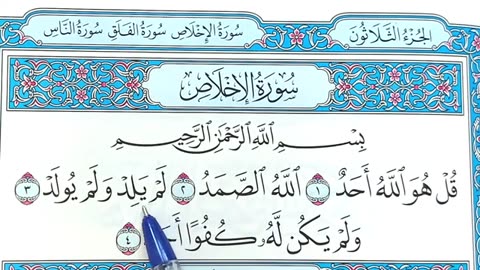 الجُزْءُ الثَّلَاثُونَ
سُورَةُ الإِخْلَاصِ سُورَةُ الفَلَقِ سُورَةُ النَّاسِ
سُورَةُ الإِخْلَاصِ
بِسْمِ ٱللَّهِ ٱلرَّحْمَٰنِ ٱلرَّحِيمِ
قُلْ هُوَ ٱللَّهُ أَحَدٌ ١ ٱللَّهُ ٱلصَّمَدُ ٢ لَمْ يَلِدْ وَلَمْ يُولَدْ ٣
وَلَمْ يَكُن لَّهُۥ كُفُوًا ٤